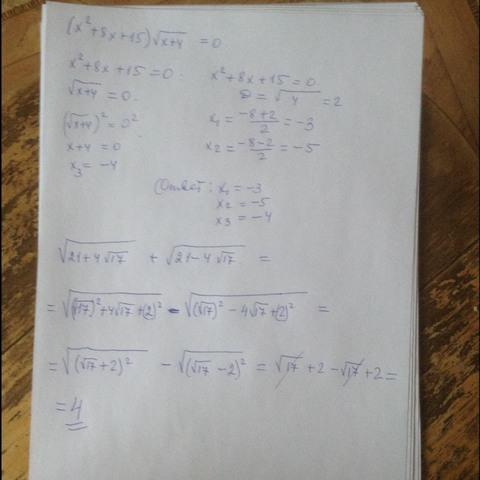 (x²+8x+15)√(x+4) = 0
x²+8x+15=0.
√(x+4) = 0.
(√(x+4))² = 0²
x+4=0
x₃ = -4
x²+8x+15=0.
D = √4 = 2
x₁ = (-8+2)/2 = -3
x₂ = (-8-2)/2 = -5
Ответ: x₁ = -3
x₂ = -5
x₃ = -4
√(21+4√17) + √(21-4√17) =
= √((√17)²+4√17+(2)²) - √((√17)²-4√17+(2)²) =
= √((√17+2)²) - √((√17-2)²) = √17+2-√17+2=
= 4